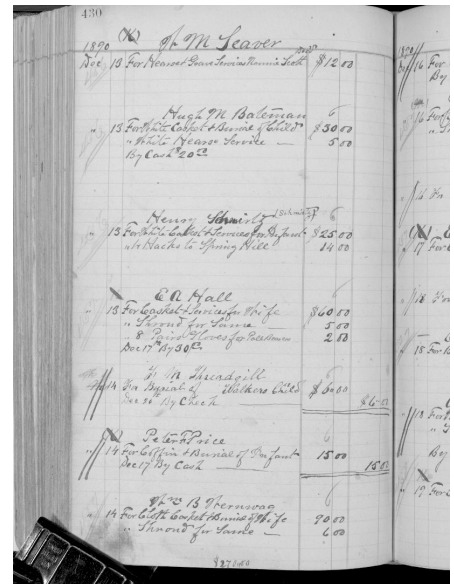 430
(X) W M Seaver
1890
Dec 13 For Hearse & Grave Services Scott $12 00
Hugh M Bateman
" 13 For White Casket & Burial of Child $30 00
" White Hearse Service — 5 00
By Cash $20 00
Henry Schwirtz (Schwirtz)
" 13 For White Casket & Services for Infant $25 00
" Hacks to Spring Hill 14 00
E A Hall
" 13 For Casket & Services for Wife $60 00
" Shroud for Same — 5 00
" 8 Pairs Gloves for Pallbearers 2 00
Dec 17th By 30
Threadgill
" 14 For Burial of Walkers Child $6 00
Dec 26th By Check — $6 00
(X) Peter F Price
" 14 For Coffin & Burial of Infant 15 00
Dec 17 By Cash — 15 00
Wm B
" 14 For Cloth Casket & Burial of Wife 90 00
" Shroud for Same — 6 00
$270.00
1890
16 For
By
16 For
17 For
18 For
By
19 For